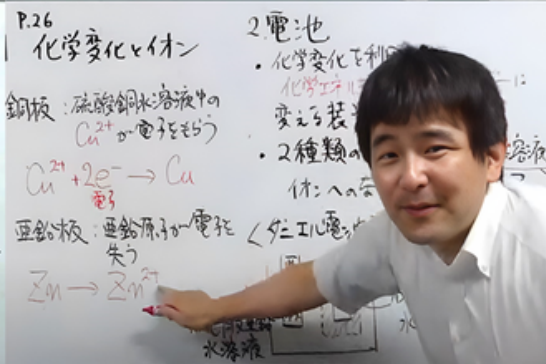 P.26
化学変化とイオン
銅板：硫酸銅水溶液中の
Cu²⁺が電子をもらう
Cu²⁺+2e⁻→Cu
電子
亜鉛板：亜鉛原子が電子を
失う
Zn→Zn²⁺
2.電池
・化学変化を利
化学エネル
に
変える装
・2種類の
溶液
イオンへの
<ダニエル電
水溶液
水